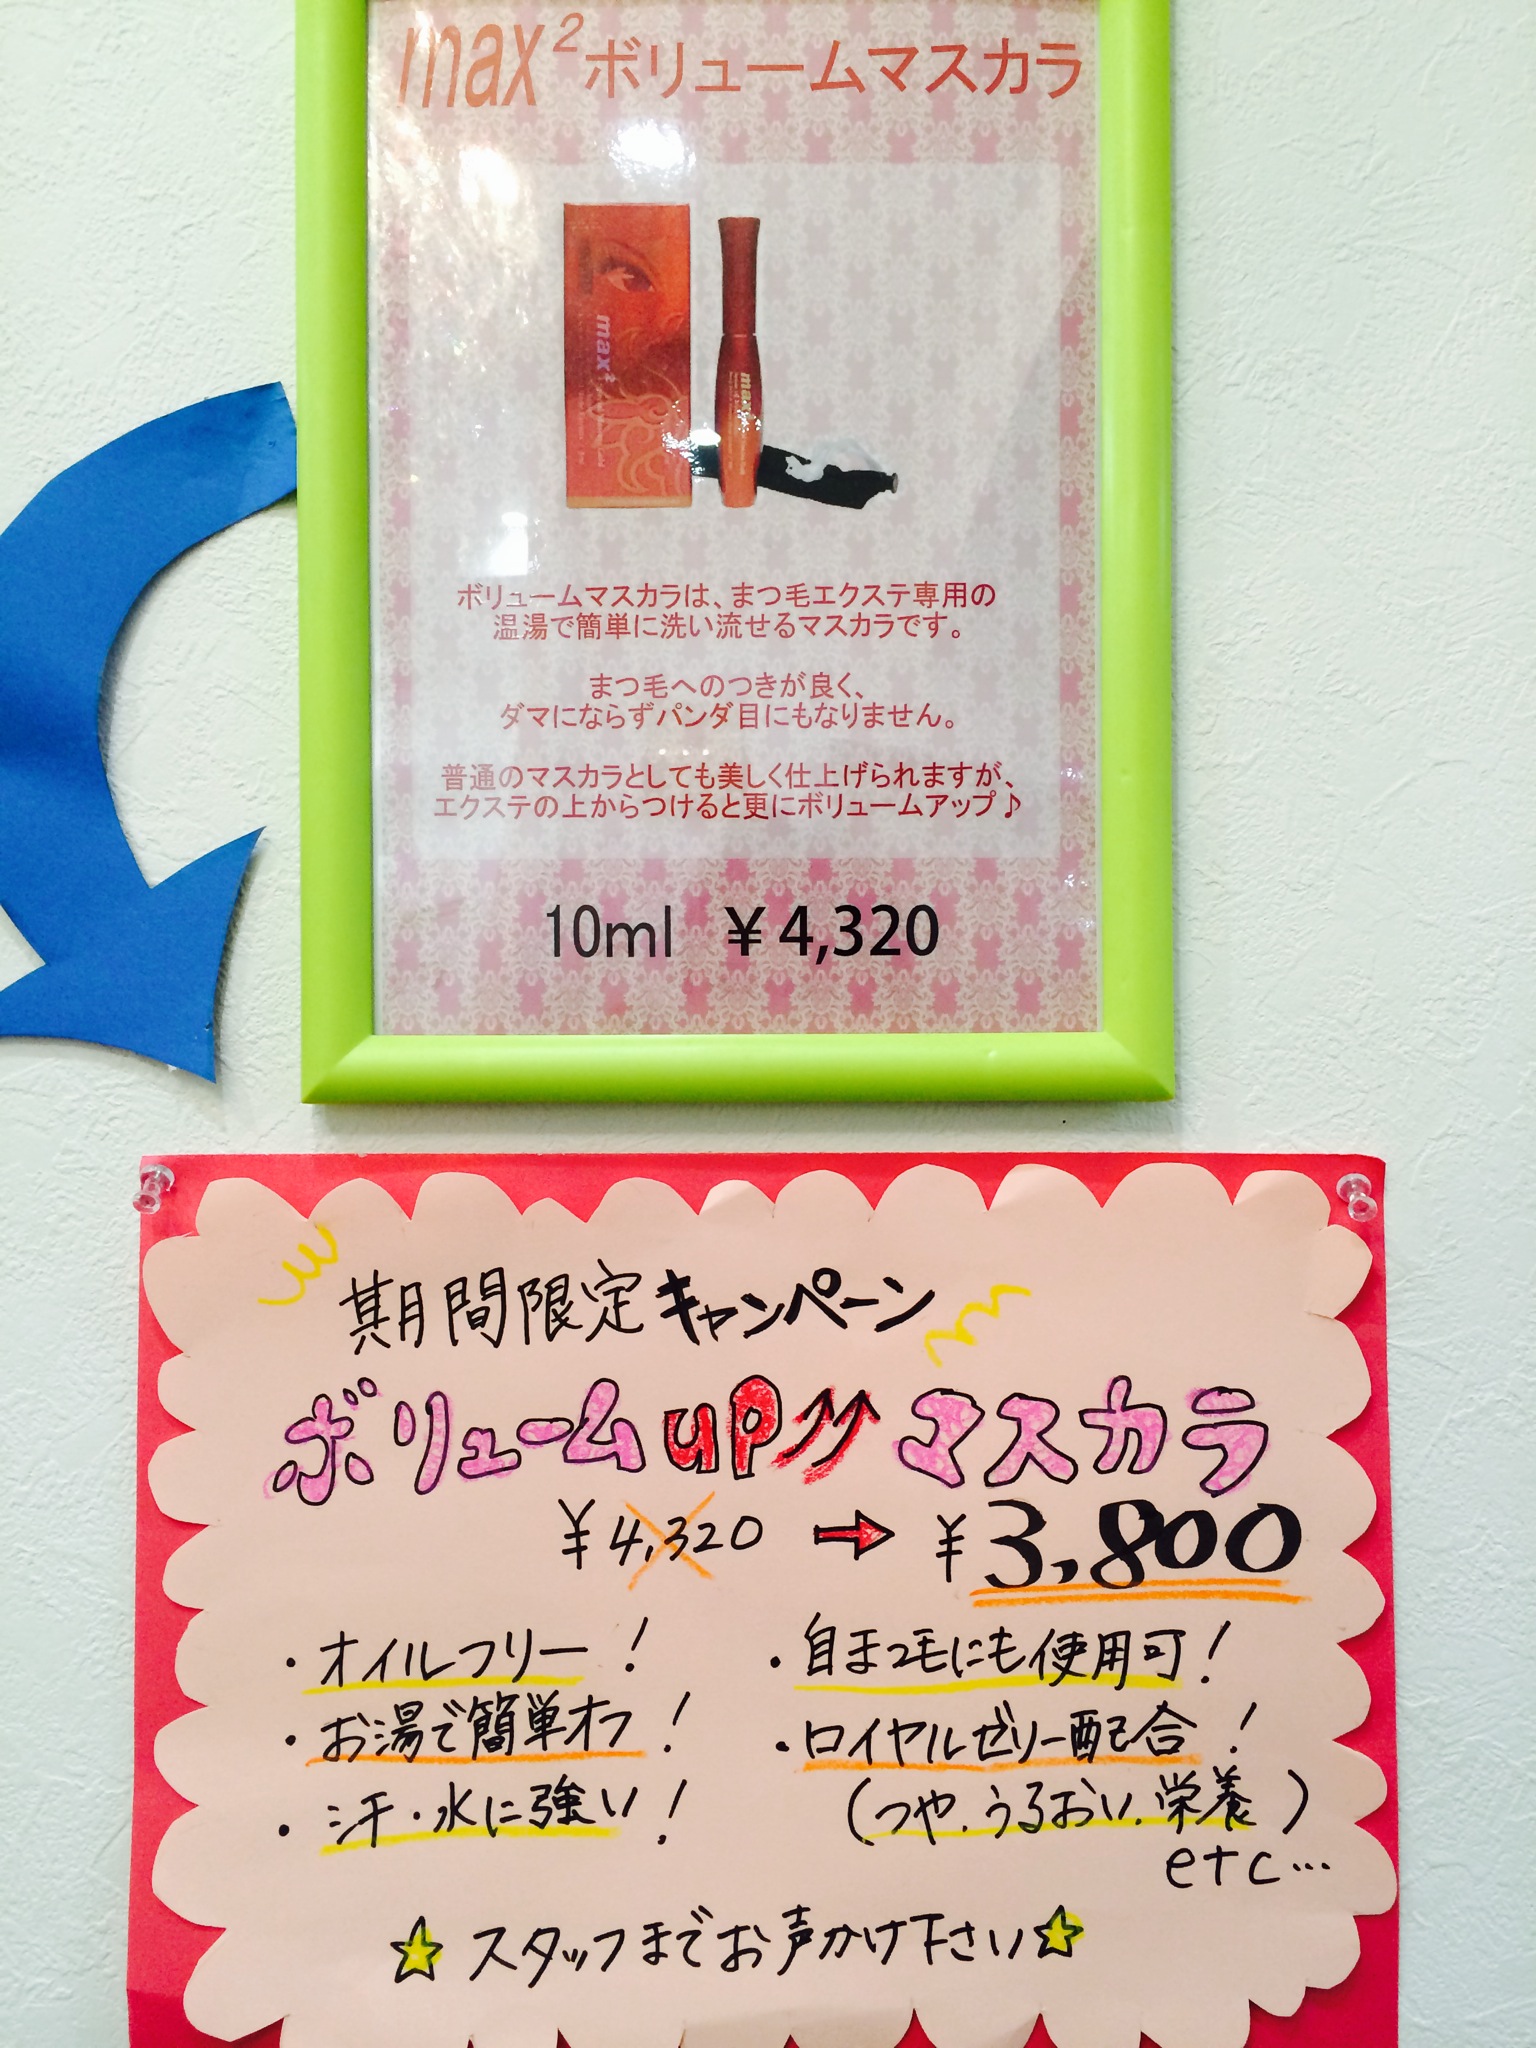 max²ボリュームマスカラ
max²
max²
ボリュームマスカラは、まつ毛エクステ専用の
温湯で簡単に洗い流せるマスカラです。
まつ毛へのつきが良く、
ダマにならずパンダ目にもなりません。
普通のマスカラとしても美しく仕上げられますが、
エクステの上からつけると更にボリュームアップ♪
10ml ¥4,320
期間限定キャンペーン
ボリュームup↗↗マスカラ
¥4,320 → ¥3,800
・オイルフリー！
・お湯で簡単オフ！
・汗・水に強い！
・自まつ毛にも使用可！
・ロイヤルゼリー配合！
（つや、うるおい、栄養）
etc…
☆スタッフまでお声かけ下さい☆